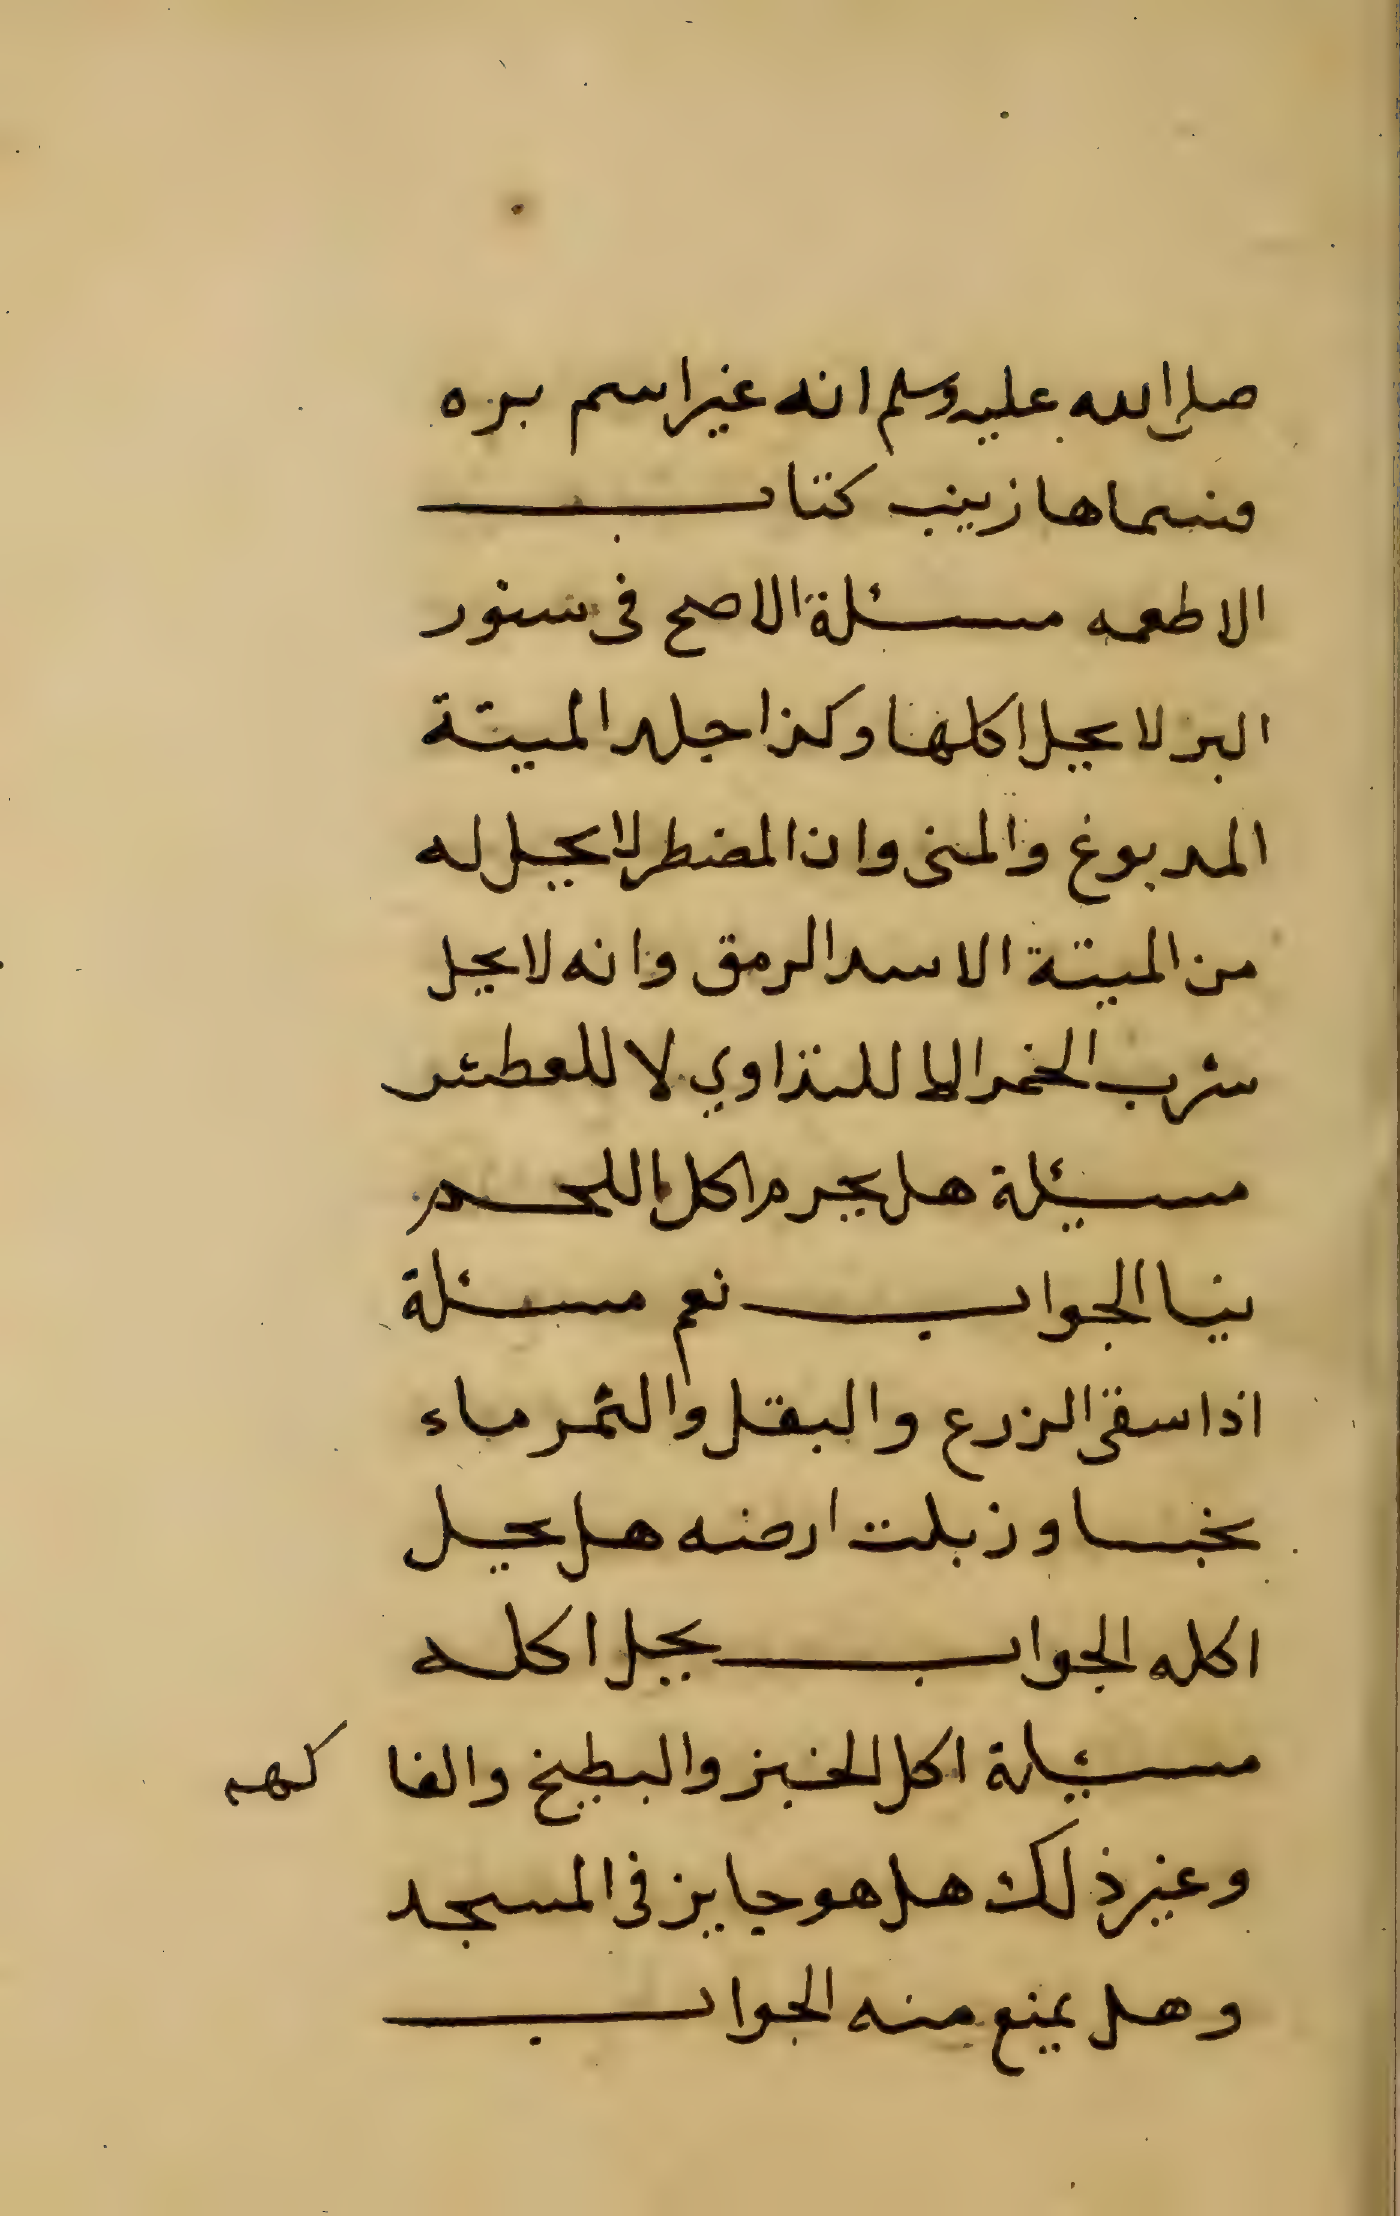 صلى الله عليه وسلم انه غير اسم بره
فسماها زينب كتاب
الاطعمه مسئلة الاصح فى سنور
البر لا يحل اكلها وكذا جلد الميتة
المدبوغ والمنى وان المضطر لا يحل له
من الميتة الا سد الرمق وانه لا يحل
شرب الخمر الا للتداوي لا للعطش
مسئلة هل يحرم اكل اللحم
نيا الجواب نعم مسئلة
اذا سقى الزرع والبقل والثمر ماء
نجسا وزبلت ارضه هل يحل
اكله الجواب يحل اكله
مسئلة اكل الخبز والبطيخ والفاكهه
وغير ذلك هل هو جايز فى المسجد
وهل يمنع منه الجواب